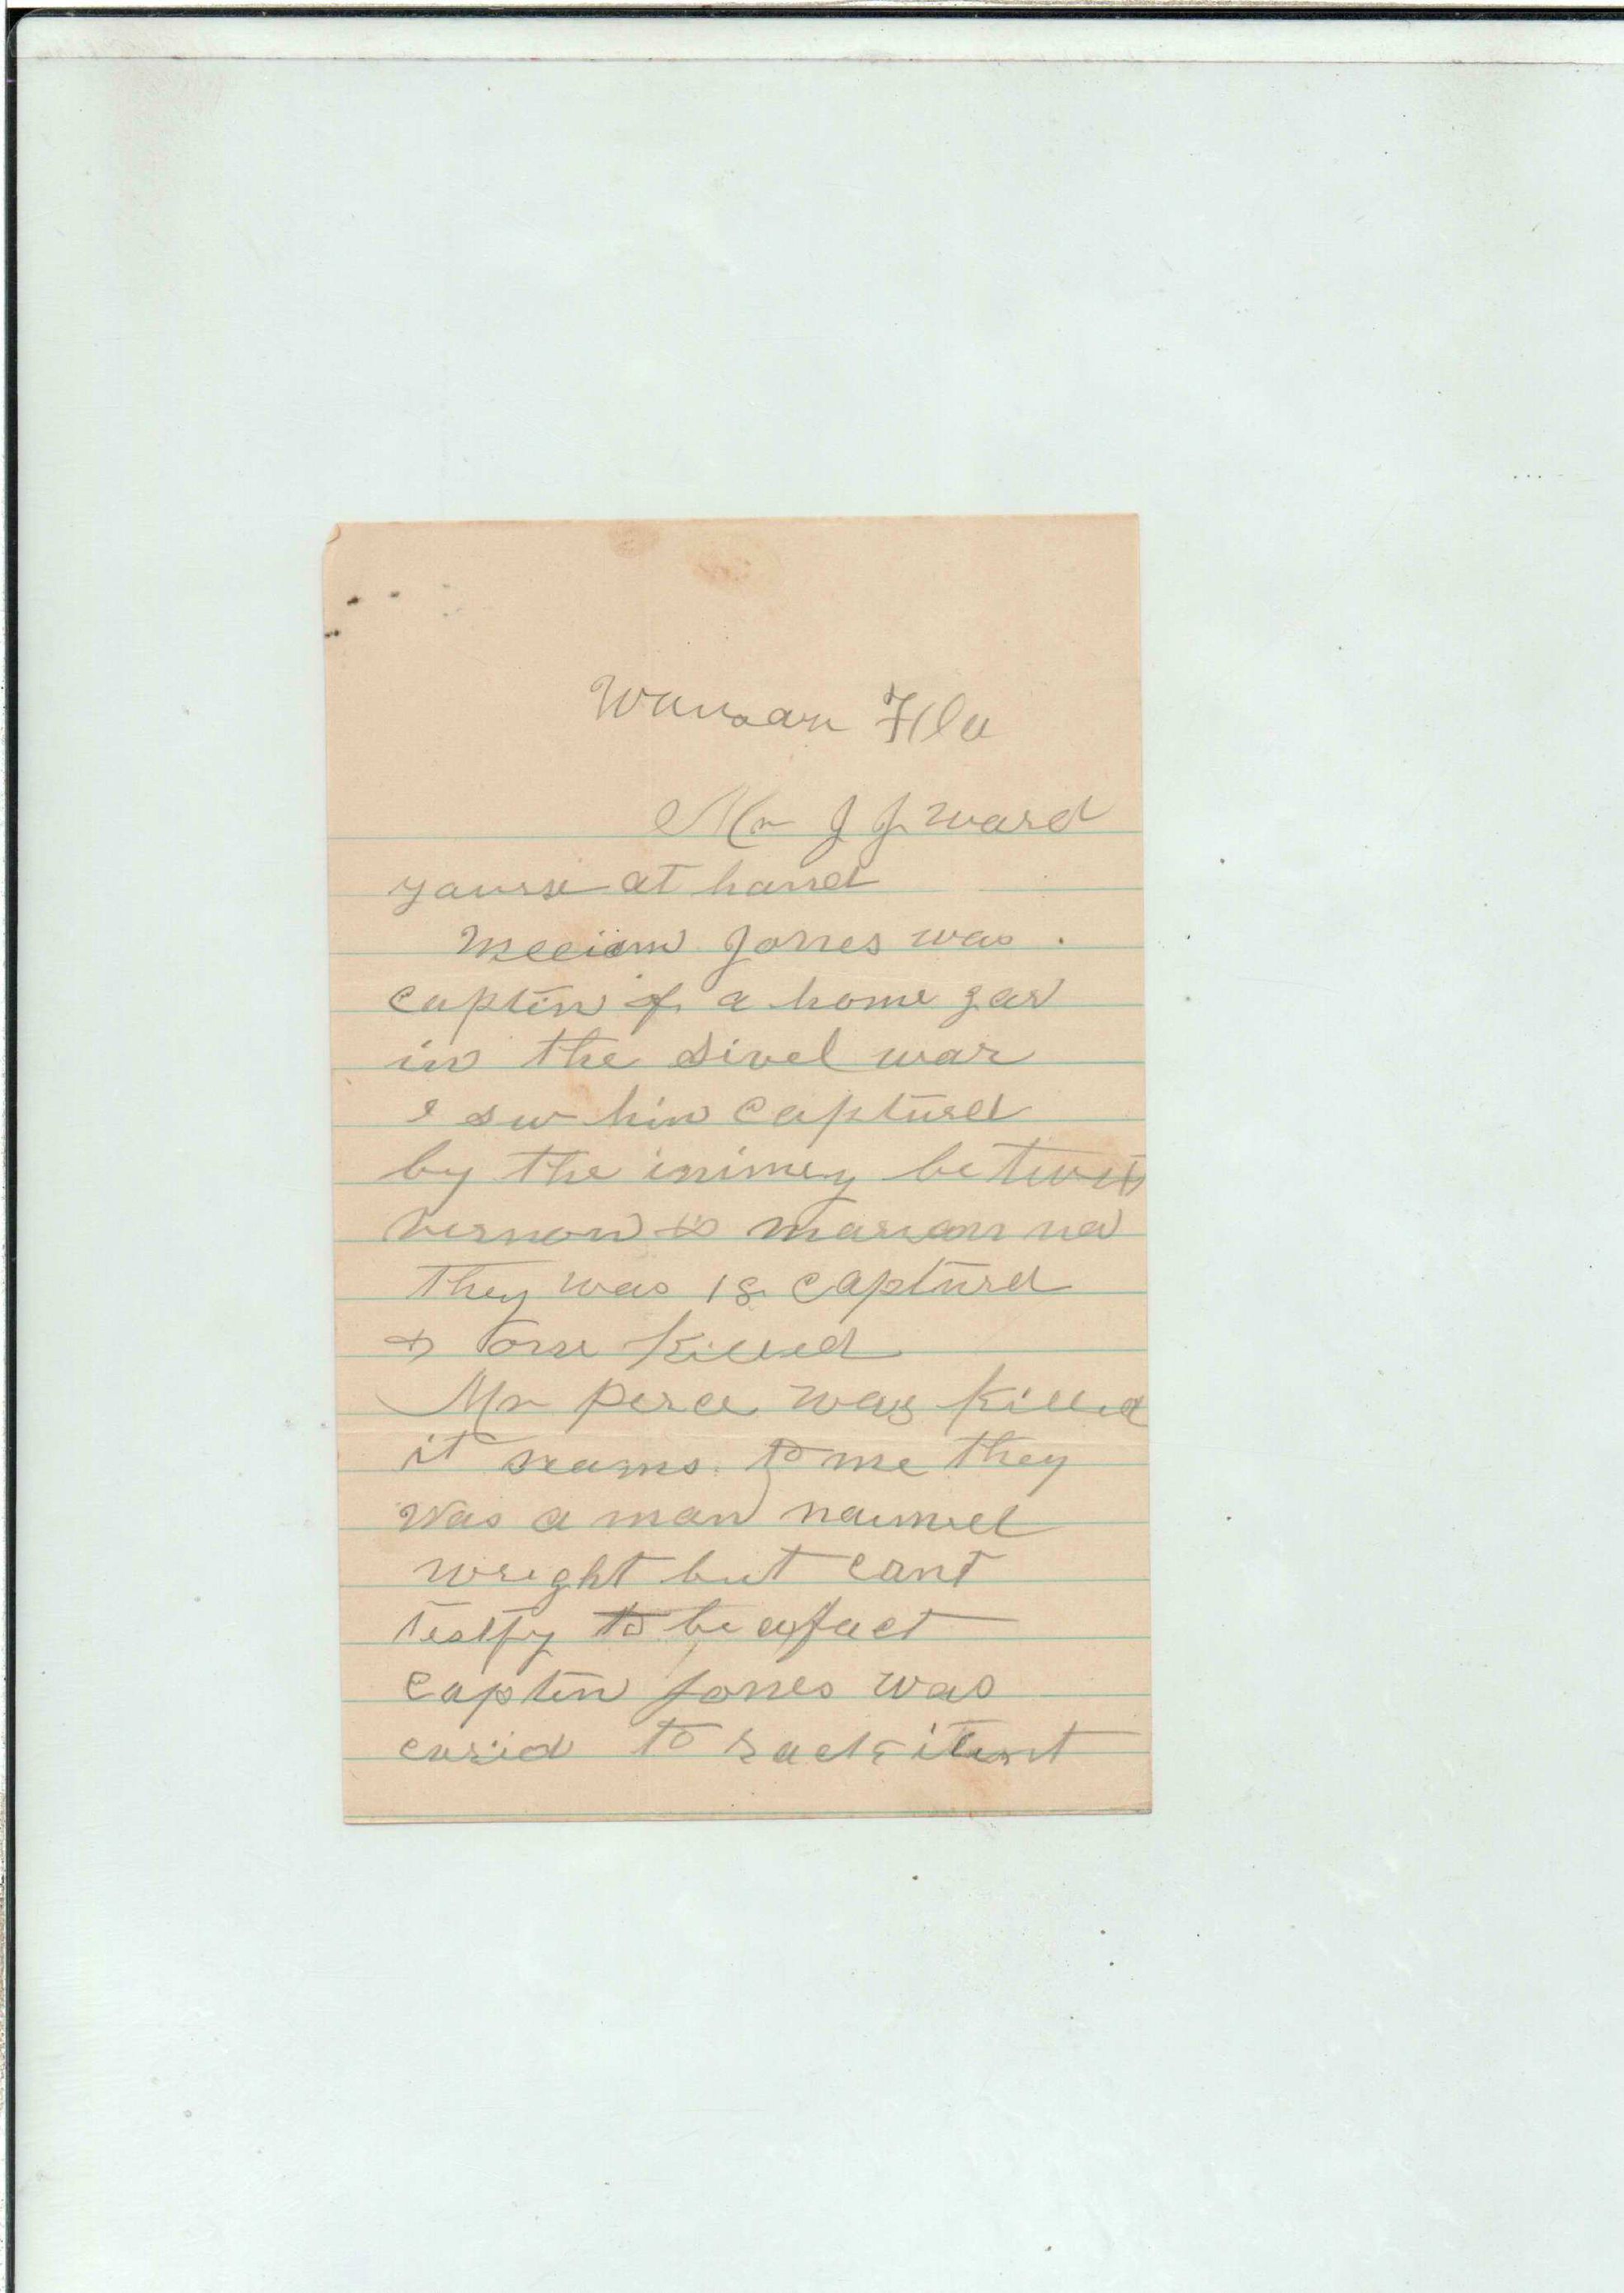 Wausau Fla
Mr J J Ward
yourse at hand
Jones was
captin of a home gar
in the Sivel war
I sw him capturd
by the inimey betwen
vernon & marianna
They was 18 capturd
& one killed
Mr perce was killed
it seams to me they
was a man naumed
wright but cant
testfy to be a fact
captin Jones was
carid to